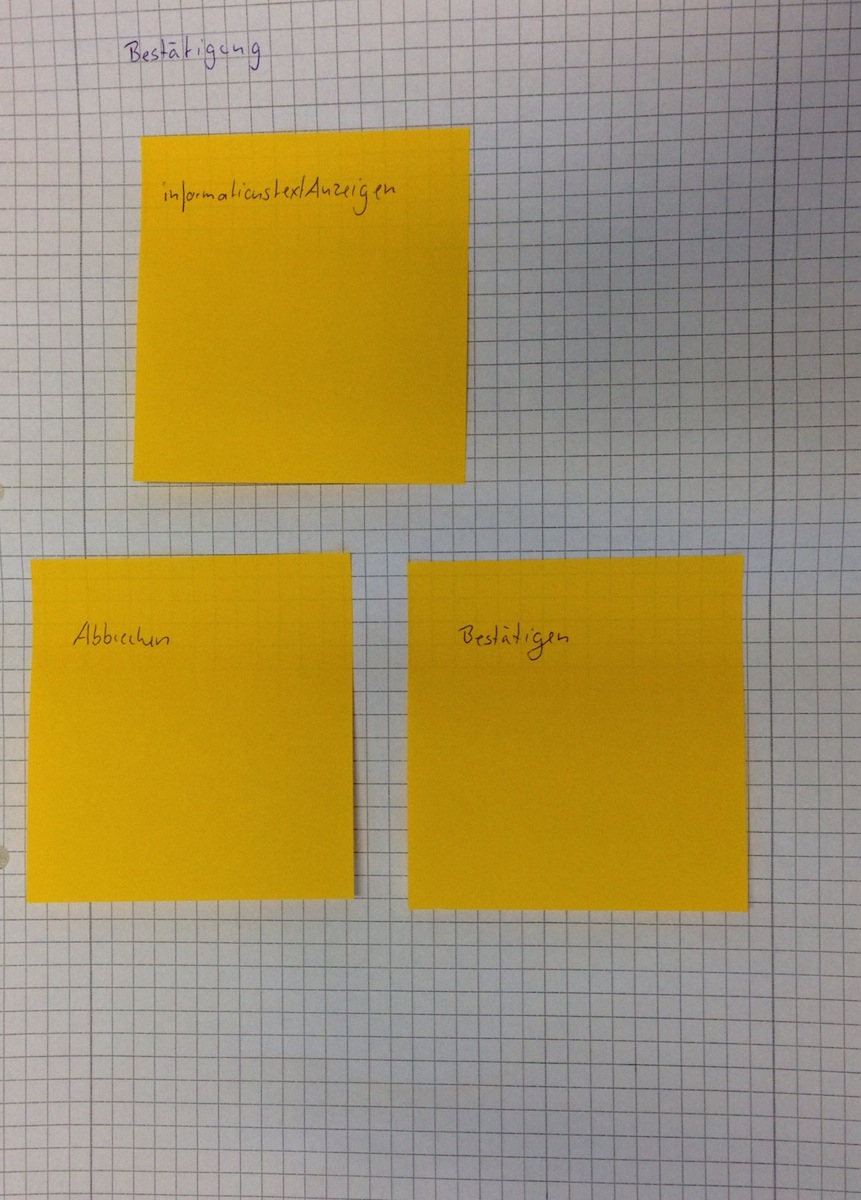 Bestätigung
informationstextAnzeigen
Abbrechen
Bestätigen